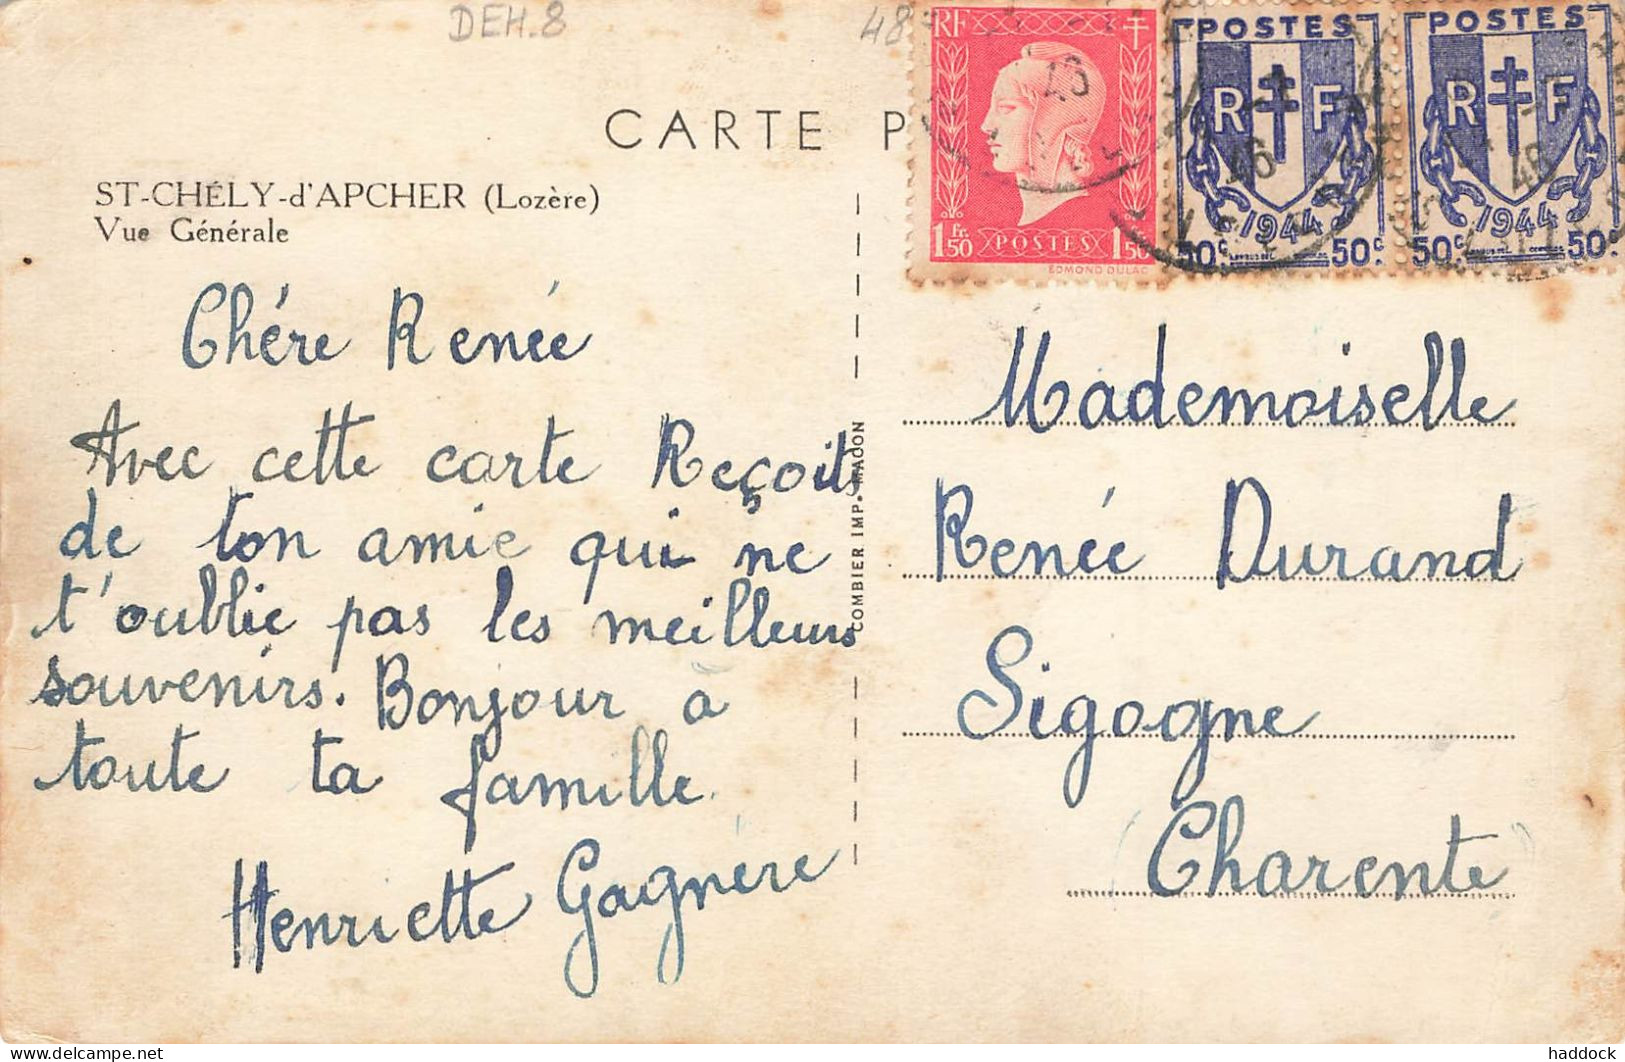 DEH.8
48
CARTE P
RF
1 Fr. 50
POSTES
1 50
EDMOND DULAC
POSTES
R F
46
1944
50c.
50c.
POSTES
R F
46
1944
50c.
50c.
ST-CHÉLY-d'APCHER (Lozère)
Vue Générale
Chére Renée
Avec cette carte Reçoit
de ton amie qui ne
t'oublie pas les meilleurs
souvenirs. Bonjour à
toute ta famille.
Henriette Gagnère
COMBIER IMP. MACON
Mademoiselle
Renée Durand
Sigogne
(Charente)
delcampe.net
haddock